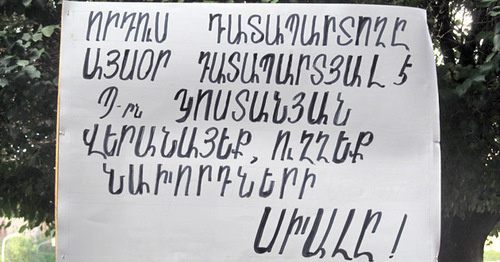 ՈՐԴՈւՍ ԴԱՏԱՊԱՐՏՈՂԸ
ԱՅՍՕՐ ԴԱՏԱՊԱՐՏՅԱԼ Է
Պ-րն ԿՈՍՏԱՆՅԱՆ
ՎԵՐԱՆԱՅԵՔ, ՈւՂՂԵՔ
ՆԱԽՈՐԴՆԵՐԻ
ՍԽԱԼԸ !